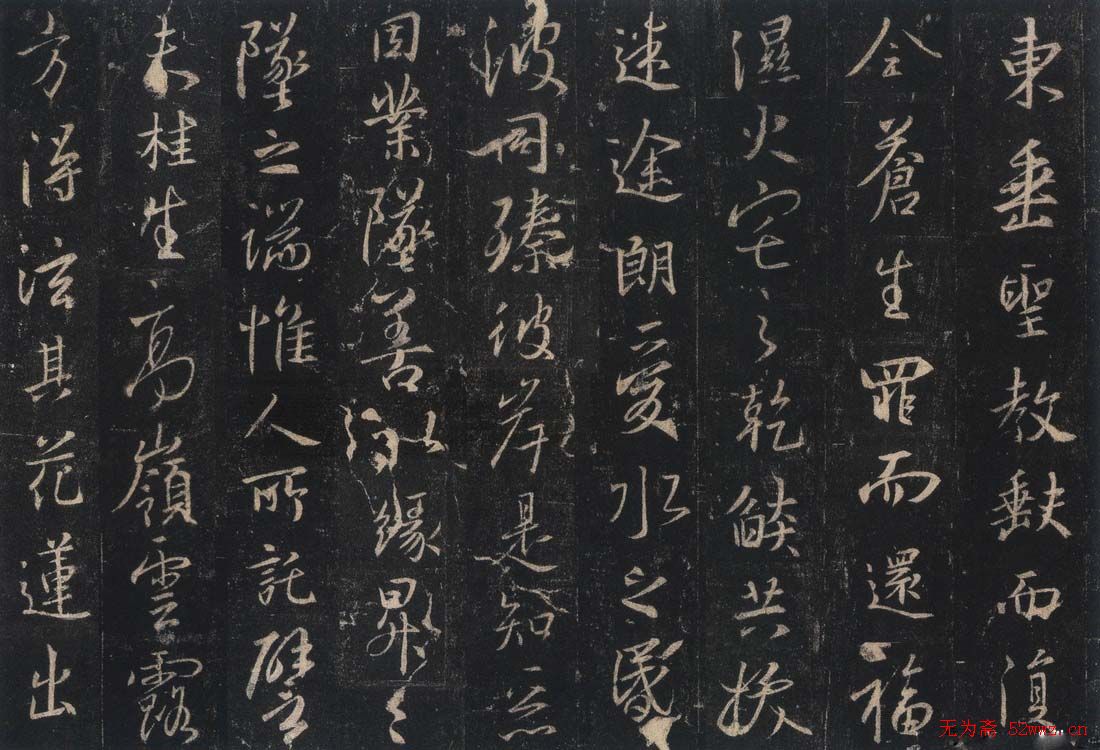 東垂聖教缺而復
全蒼生罪而還福
濕火宅之乾焰共拔
迷途朗愛水之昏
波同臻彼岸是知惡
因業墜善以緣昇〻
墜之端惟人所託譬
夫桂生高嶺雲露
方得泫其花蓮出
无为斋 52wwz.cn